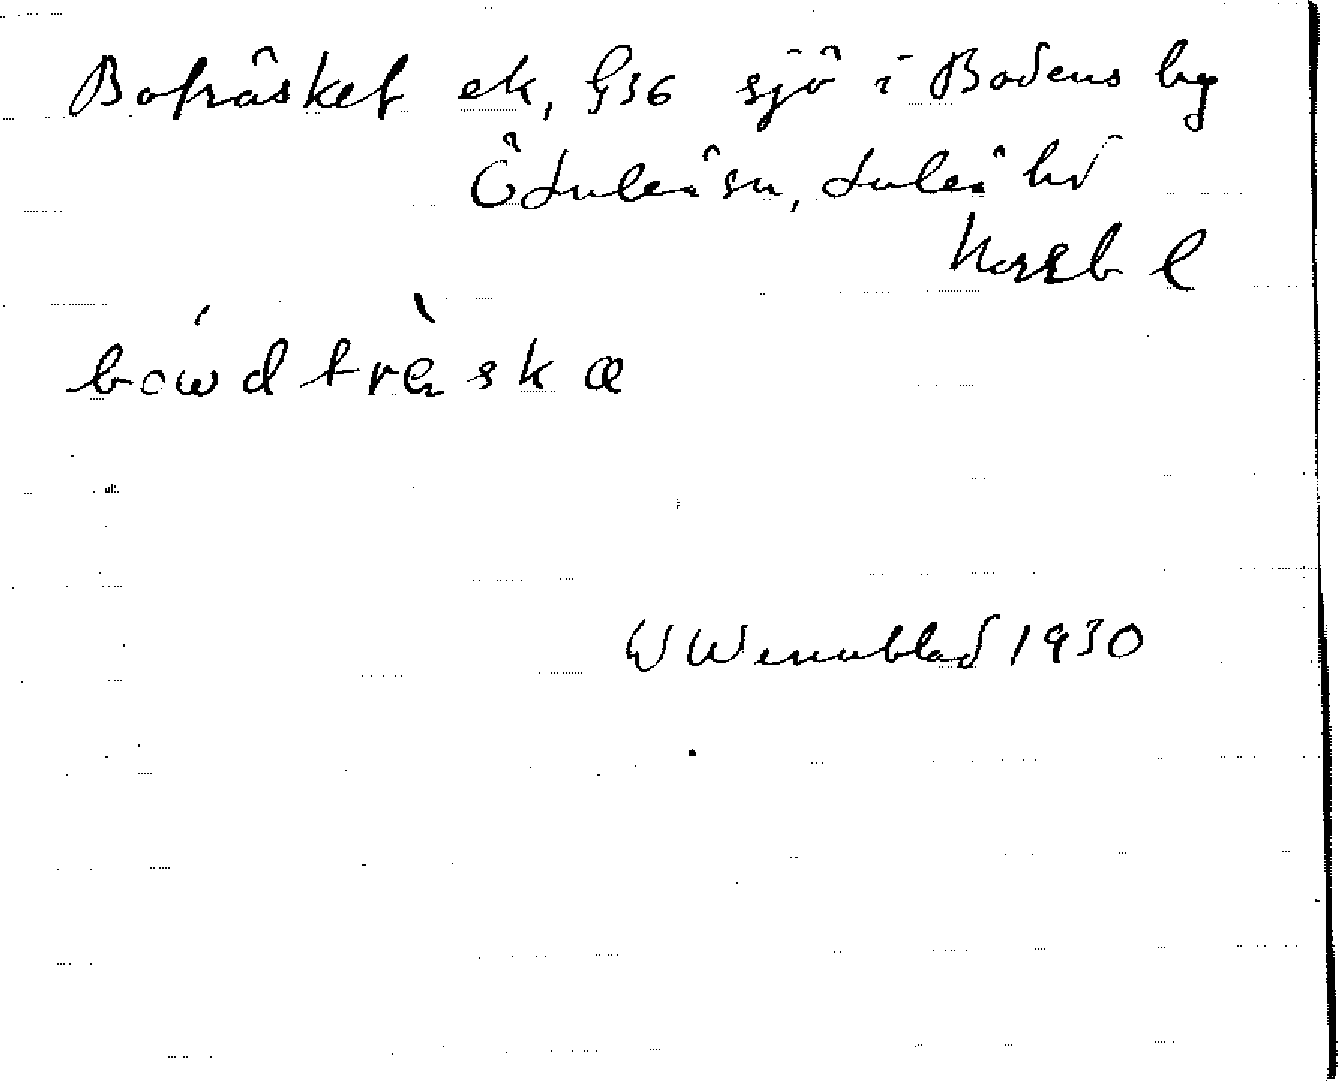 Boträsket ek, G36 sjö i Bodens by
Ö Luleå sn, Luleå hd
Norrb l
bowdtrèskæ
W Wennblad 1930